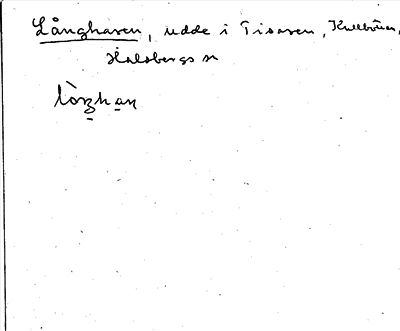 Långhaven, udde i Tisaren, Kullbäcken,
Hallsbergs sn